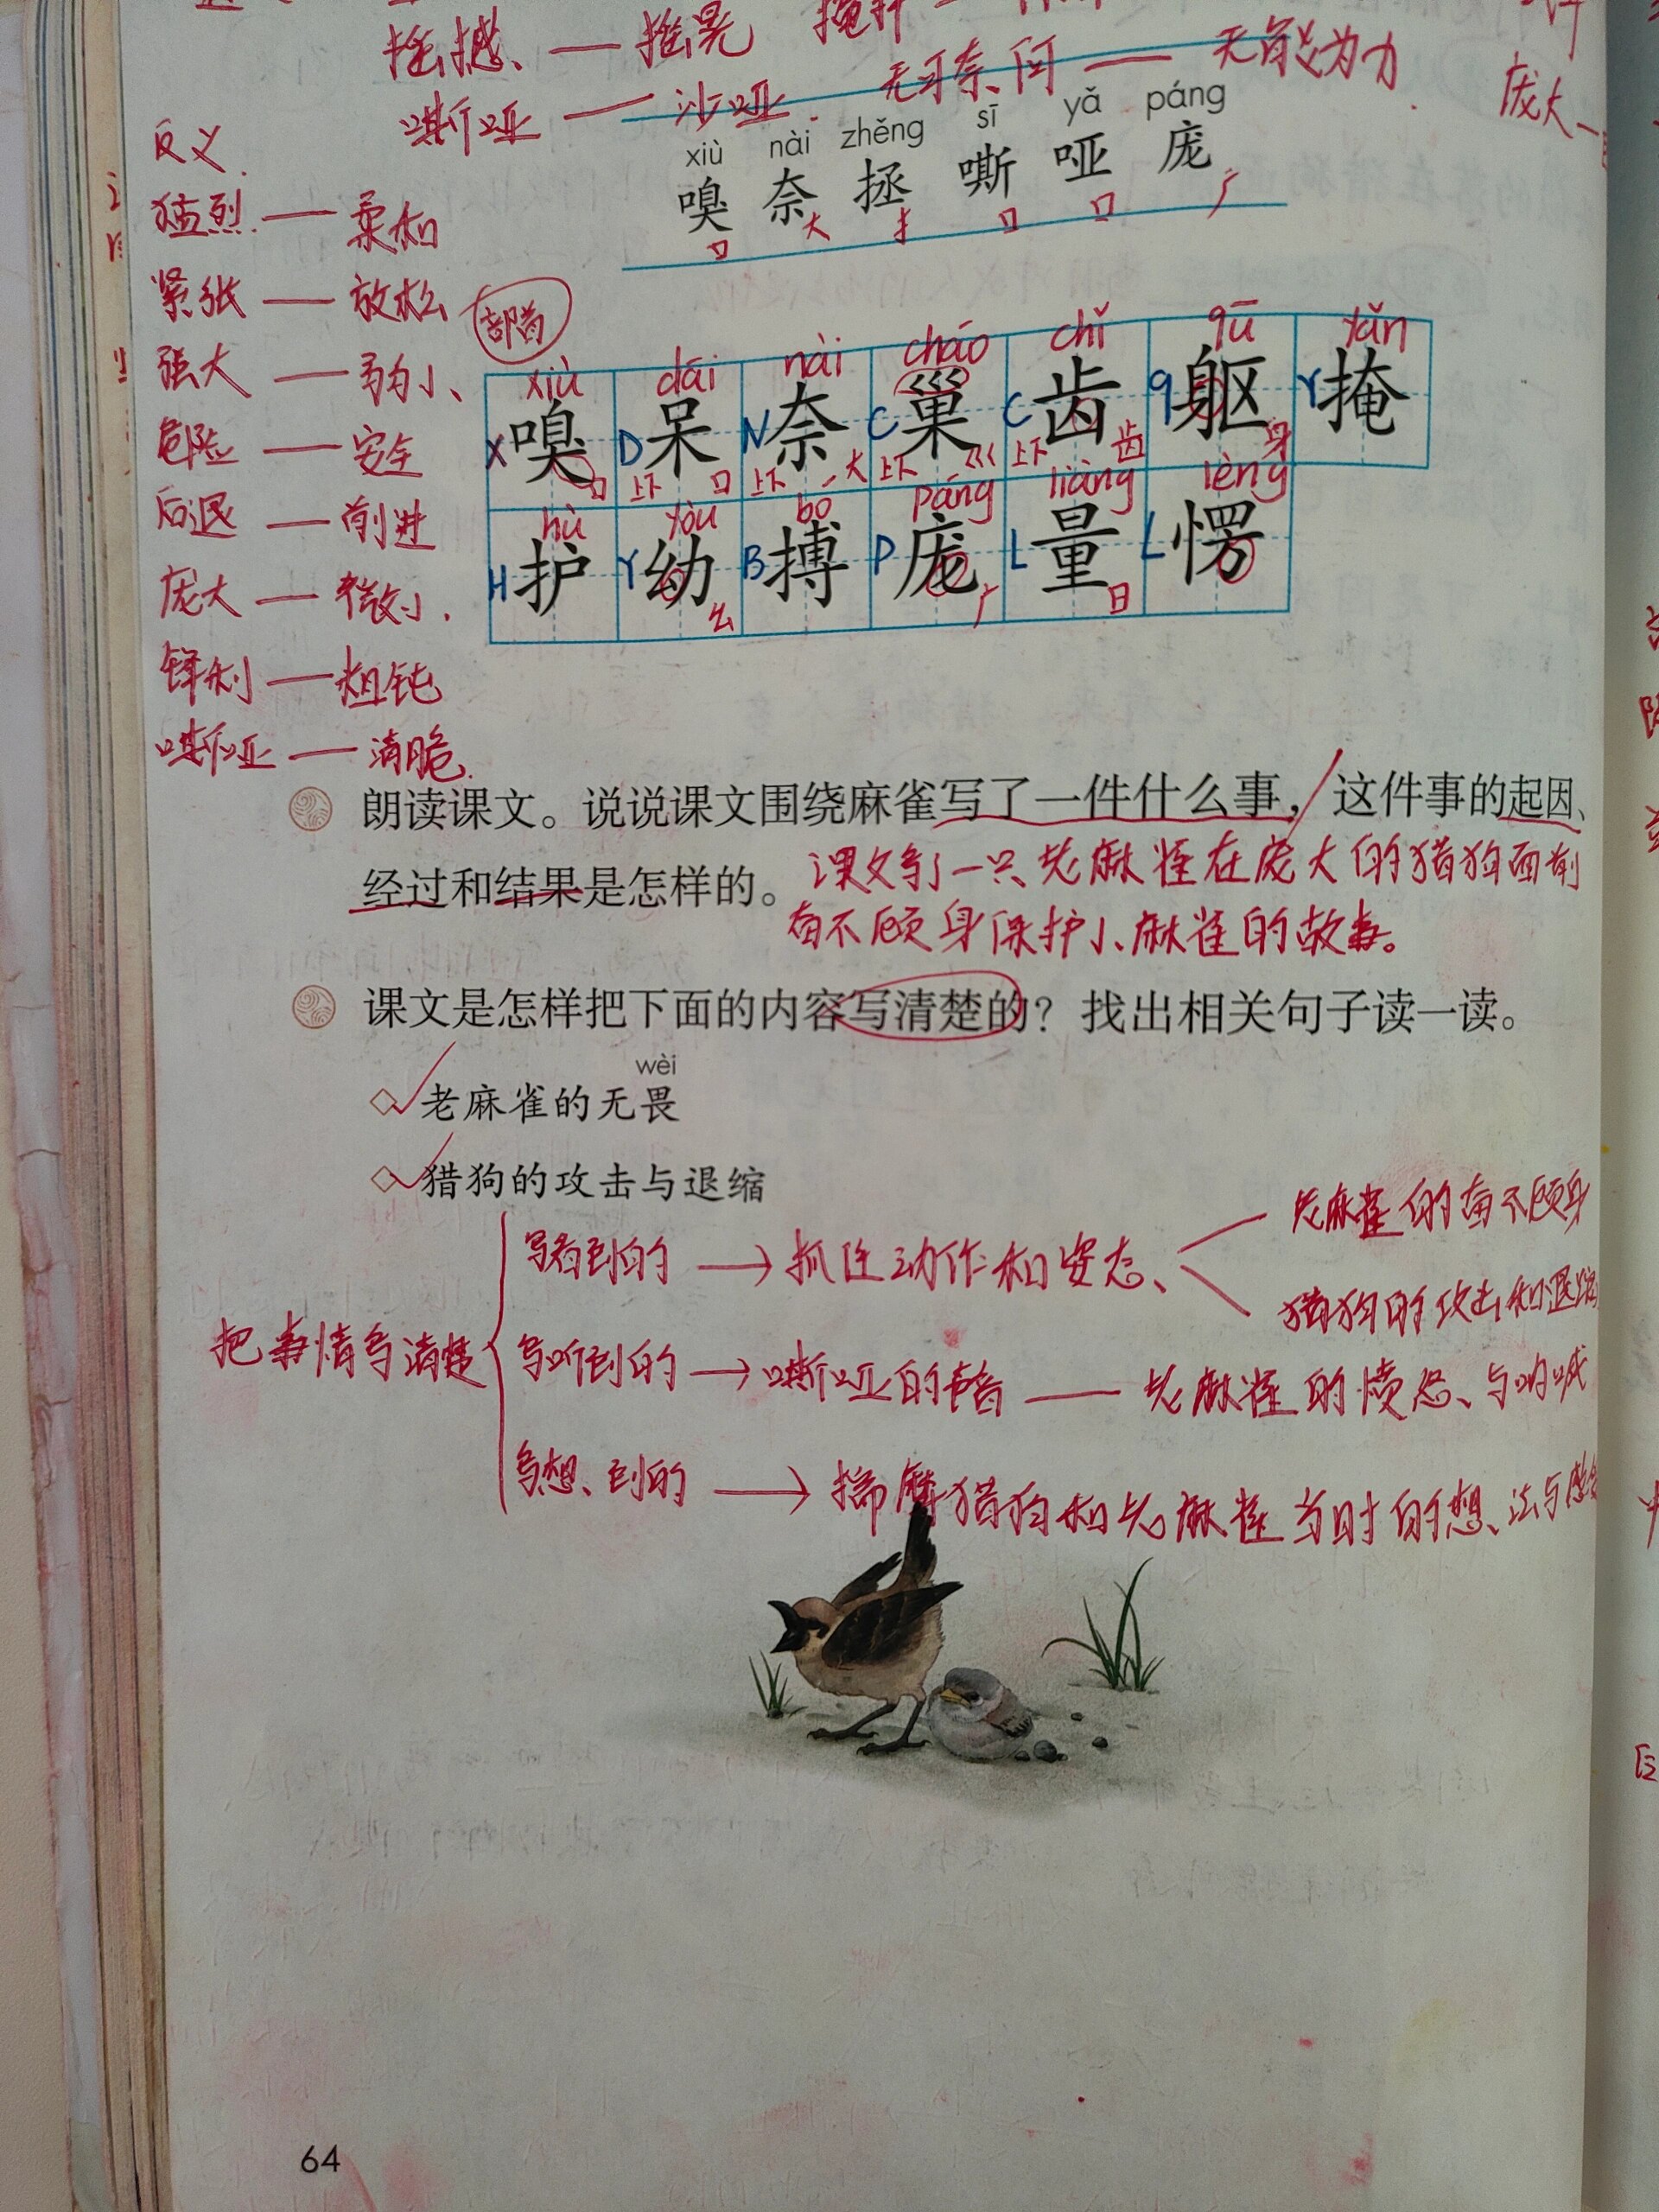 摇撼 — 摇晃
无可奈何 — 无能为力
嘶哑 — 沙哑
庞大
xiù nài zhěng sī yǎ páng
嗅 奈 拯 嘶 哑 庞
口 大 扌 口 口 广
反义
猛烈 — 柔和
紧张 — 放松
强大 — 弱小
危险 — 安全
后退 — 前进
庞大 — 微小
锋利 — 粗钝
嘶哑 — 清脆
部首
xiù dāi nài cháo chǐ qū yǎn
X嗅 D呆 N奈 C巢 C齿 q躯 Y掩
口 上下 口 上下 大 上下 巛 上下 齿 身
hù yòu bó páng liàng lèng
H护 Y幼 B搏 P庞 L量 L愣
幺 广 日
朗读课文。说说课文围绕麻雀写了一件什么事，这件事的起因、
经过和结果是怎样的。
课文写了一只老麻雀在庞大的猎狗面前
奋不顾身保护小麻雀的故事。
课文是怎样把下面的内容写清楚的？找出相关句子读一读。
wèi
老麻雀的无畏
猎狗的攻击与退缩
把事情写清楚
写看到的 → 抓住动作和姿态
老麻雀的奋不顾身
猎狗的攻击和退缩
写听到的 → 嘶哑的声音 — 老麻雀的愤怒与呐喊
写想到的 → 揣摩猎狗和老麻雀当时的想法与感
64